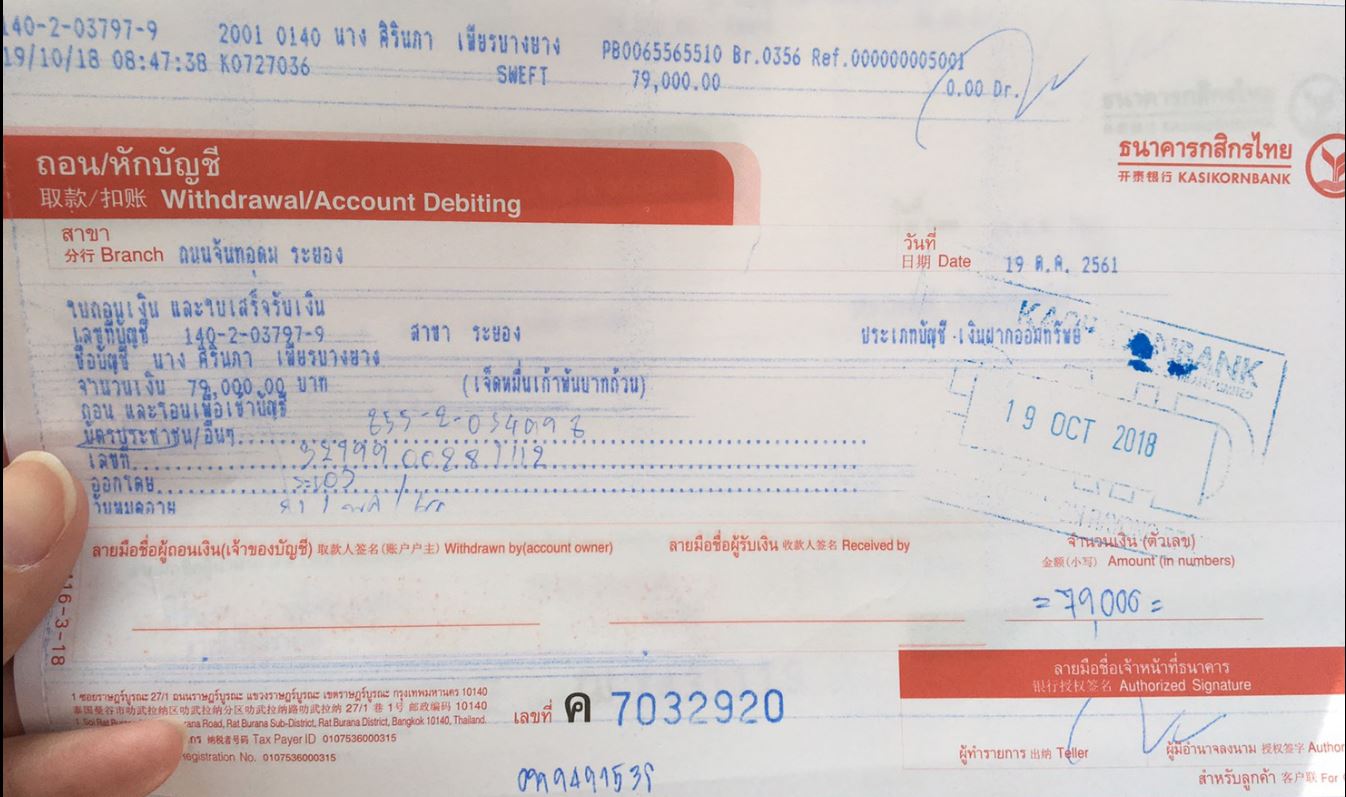 140-2-03797-9 2001 0140 นาง ศิรินภา เพียรบางยาง PB0065565510 Br.0356 Ref.000000005001
19/10/18 08:47:38 K0727036 SWEFT 79,000.00 0.00 Dr.
ธนาคารกสิกรไทย
开泰银行 KASIKORNBANK
ถอน/หักบัญชี
取款/扣账 Withdrawal/Account Debiting
สาขา
分行 Branch ถนนจันทอุดม ระยอง
วันที่
日期 Date 19 ต.ค. 2561
ใบถอนเงิน และใบเสร็จรับเงิน
เลขที่บัญชี 140-2-03797-9 สาขา ระยอง ประเภทบัญชี เงินฝากออมทรัพย์
ชื่อบัญชี นาง ศิรินภา เพียรบางยาง
จำนวนเงิน 79,000.00 บาท (เจ็ดหมื่นเก้าพันบาทถ้วน)
ถอน และโอนเพื่อเข้าบัญชี
บัตรประชาชน/อื่นๆ
เลขที่
ออกโดย
วันหมดอายุ
KASIKORNBANK
19 OCT 2018
ลายมือชื่อผู้ถอนเงิน(เจ้าของบัญชี) 取款人签名 (账户户主) Withdrawn by(account owner)
ลายมือชื่อผู้รับเงิน 收款人签名 Received by
จำนวนเงิน (ตัวเลข)
金额(小写) Amount (in numbers)
=79,000=
16-3-18
ลายมือชื่อเจ้าหน้าที่ธนาคาร
银行授权签名 Authorized Signature
1 ซอยราษฎร์บูรณะ 27/1 ถนนราษฎร์บูรณะ แขวงราษฎร์บูรณะ เขตราษฎร์บูรณะ กรุงเทพมหานคร 10140
泰国曼谷市叻武拉纳区叻武拉纳分区叻武拉纳路叻武拉纳 27/1 巷 1号 邮政编码 10140
1 Soi Rat Road, Rat Burana Sub-District, Rat Burana District, Bangkok 10140, Thailand.
纳税者号码 Tax Payer ID 0107536000315
egistration No. 0107536000315
เลขที่ ค 7032920
ผู้ทำรายการ 出纳 Teller
ผู้มีอำนาจลงนาม 授权签字 Author
สำหรับลูกค้า 客户联 For